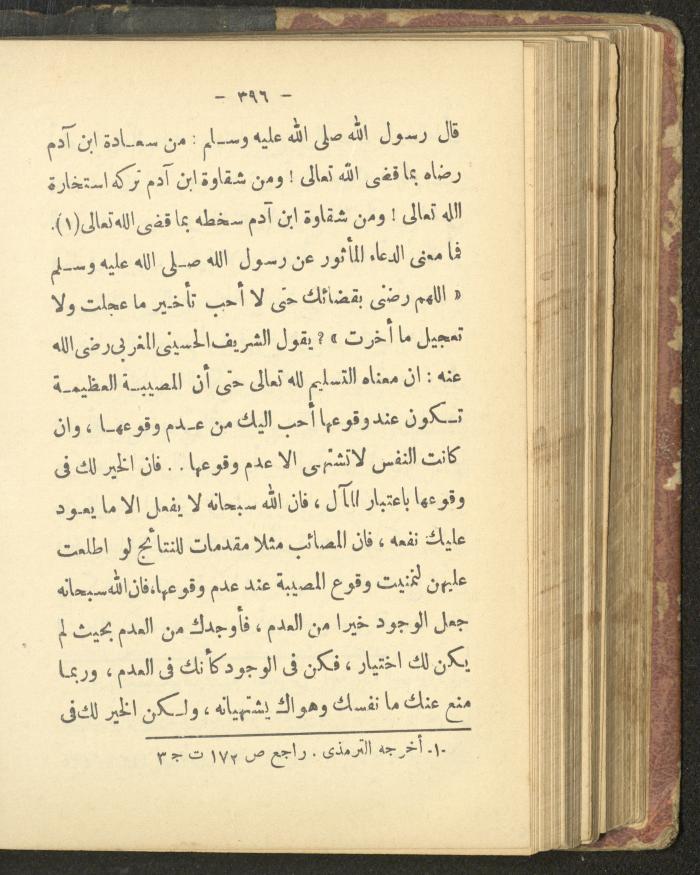 – ٣٩٦ –
قال رسول الله صلى الله عليه وسلم : من سعادة ابن آدم
رضاه بما قضى الله تعالى ! ومن شقاوة ابن آدم تركه استخارة
الله تعالى ! ومن شقاوة ابن آدم سخطه بما قضى الله تعالى (١).
فما معنى الدعاء المأثور عن رسول الله صلى الله عليه وسلم
« اللهم رضنى بقضائك حتى لا أحب تأخير ما عجلت ولا
تعجيل ما أخرت » ؟ يقول الشريف الحسينى المغربى رضى الله
عنه : ان معناه التسليم لله تعالى حتى أن المصيبة العظيمة
تكون عند وقوعها أحب اليك من عدم وقوعها ، وان
كانت النفس لا تشتهى الا عدم وقوعها . . فان الخير لك فى
وقوعها باعتبار المآل ، فان الله سبحانه لا يفعل الا ما يعود
عليك نفعه ، فان المصائب مثلا مقدمات للنتائج لو اطلعت
عليهن لتمنيت وقوع المصيبة عند عدم وقوعها، فان الله سبحانه
جعل الوجود خيرا من العدم ، فأوجدك من العدم بحيث لم
يكن لك اختيار ، فكن فى الوجود كأنك فى العدم ، وربما
منع عنك ما نفسك وهواك يشتهيانه ، ولكن الخير لك فى
-١- أخرجه الترمذى . راجع ص ١٧٢ ت ج ٣